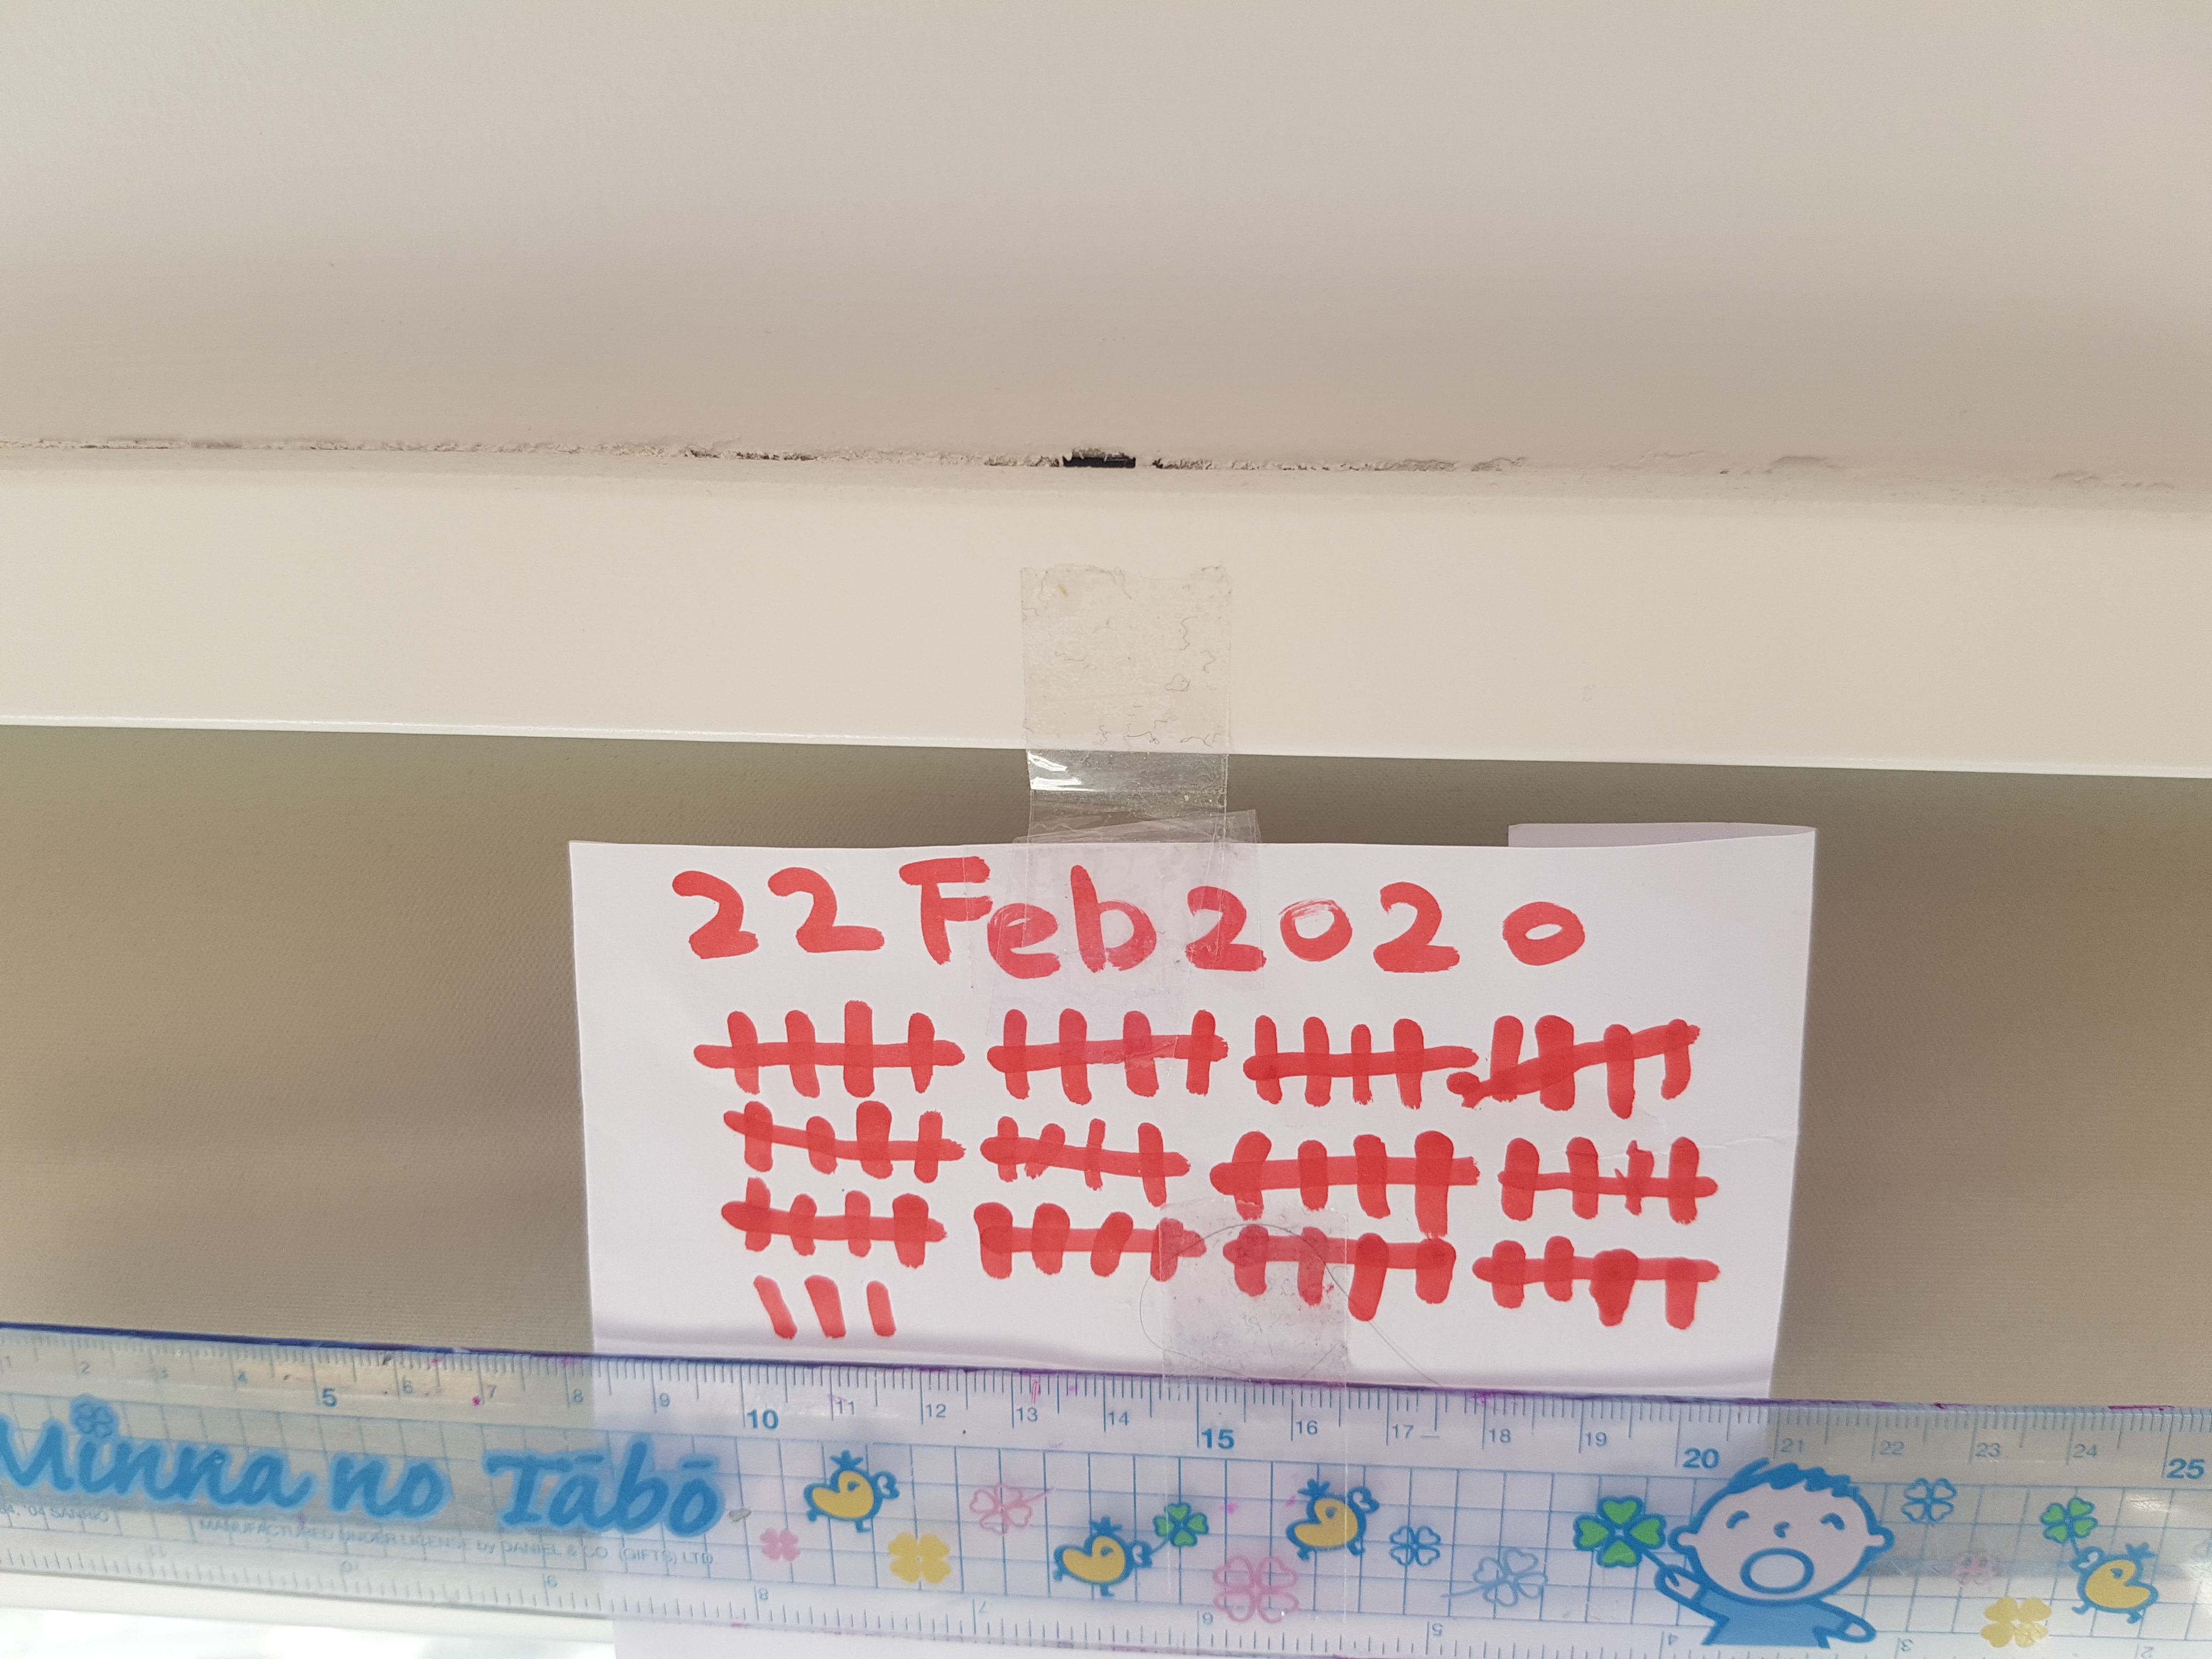 22 Feb 2020
1 2 3 4 5 6 7 8 9 10 11 12 13 14 15 16 17 18 19 20 21 22 23 24 25
Minna no Tābō
'04 SANRIO
MANUFACTURED UNDER LICENSE by DANIEL & CO. (GIFTS) LTD.
11 10 9 8 7 6 5 4 3 2